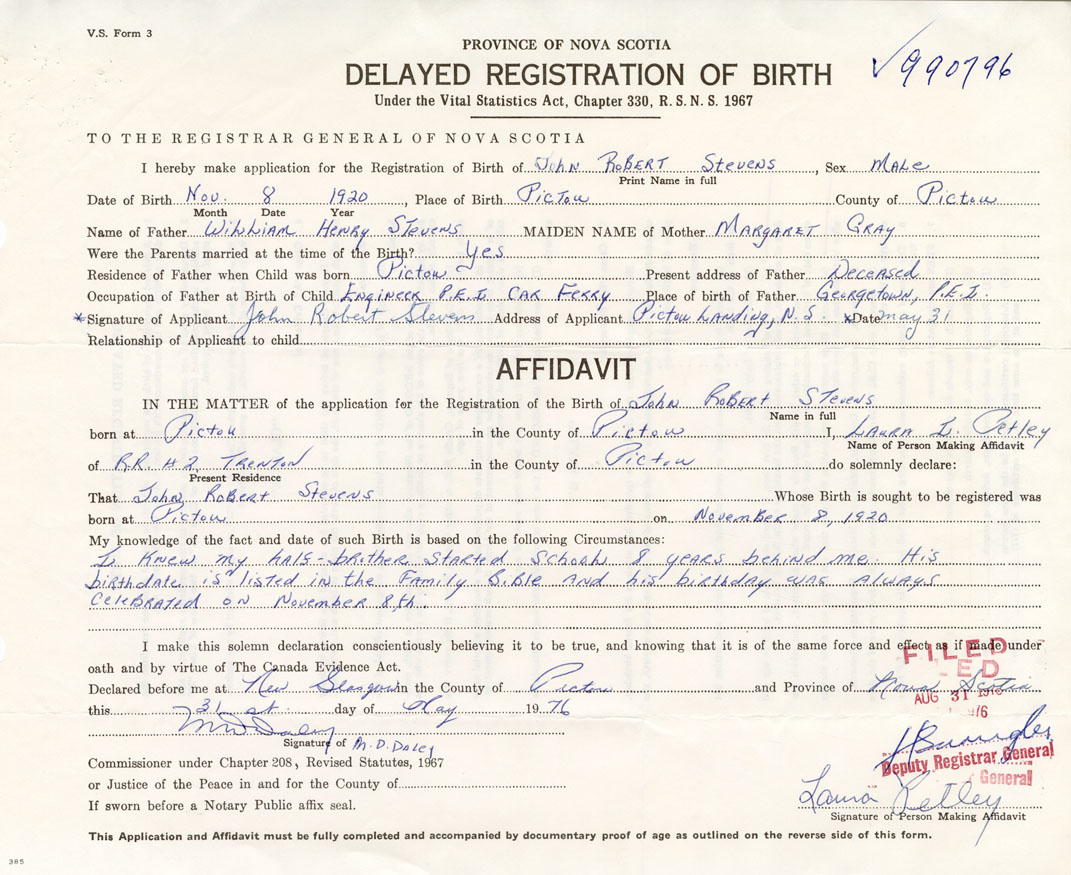 V.S. Form 3
PROVINCE OF NOVA SCOTIA
DELAYED REGISTRATION OF BIRTH
√990796
Under the Vital Statistics Act, Chapter 330, R. S. N. S. 1967
TO THE REGISTRAR GENERAL OF NOVA SCOTIA
I hereby make application for the Registration of Birth of John Robert Stevens, Sex Male
Print Name in full
Date of Birth Nov. 8 1920, Place of Birth Pictou County of Pictou
Month Date Year
Name of Father William Henry Stevens MAIDEN NAME of Mother Margaret Gray
Were the Parents married at the time of the Birth? Yes
Residence of Father when Child was born Pictou Present address of Father Deceased
Occupation of Father at Birth of Child Engineer P.E.I. Car Ferry Place of birth of Father Georgetown, P.E.I.
*Signature of Applicant John Robert Stevens Address of Applicant Pictou Landing, N.S. *Date May 31
Relationship of Applicant to child
AFFIDAVIT
IN THE MATTER of the application for the Registration of the Birth of John Robert Stevens
Name in full
born at Pictou in the County of Pictou I, Laura L. Petley
Name of Person Making Affidavit
of R.R. #2 Trenton in the County of Pictou do solemnly declare:
Present Residence
That John Robert Stevens Whose Birth is sought to be registered was
born at Pictou on November 8, 1920
My knowledge of the fact and date of such Birth is based on the following Circumstances:
I knew my half-brother started school 8 years behind me. His
birthdate is listed in the Family Bible and his birthday was always
celebrated on November 8th.
I make this solemn declaration conscientiously believing it to be true, and knowing that it is of the same force and effect as if made under
oath and by virtue of The Canada Evidence Act.
FILED
ED
Declared before me at New Glasgow in the County of Pictou and Province of Nova Scotia
AUG 31 1976
this 31 st day of May 1976
Signature of M. D. Daley
Commissioner under Chapter 208, Revised Statutes, 1967
Deputy Registrar General
General
or Justice of the Peace in and for the County of
Laura Petley
If sworn before a Notary Public affix seal.
Signature of Person Making Affidavit
This Application and Affidavit must be fully completed and accompanied by documentary proof of age as outlined on the reverse side of this form.
385